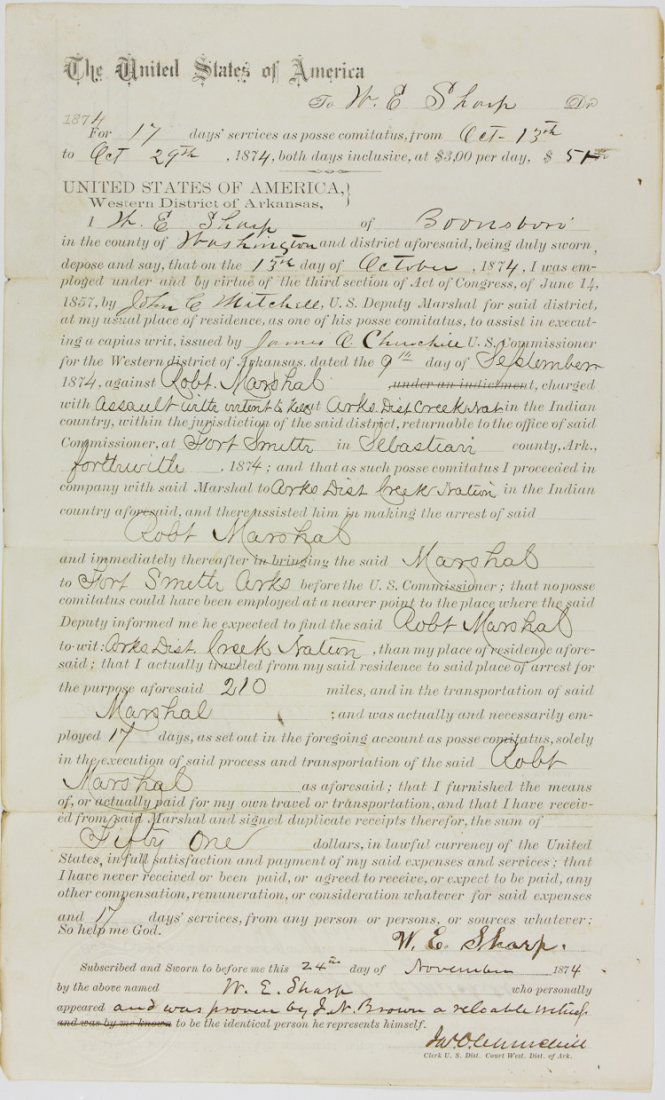 The United States of America
To W. E Sharp Dr
1874
For 17 days' services as posse comitatus, from Oct- 13th
to Oct 29th, 1874, both days inclusive, at $3,00 per day, $ 51
UNITED STATES OF AMERICA,}
Western District of Arkansas,
I W. E Sharp of Boonsboro
in the county of Washington and district aforesaid, being duly sworn,
depose and say, that on the 13th day of October, 1874, I was em-
ployed under and by virtue of the third section of Act of Congress, of June 14,
1857, by John C Mitchell, U. S. Deputy Marshal for said district,
at my usual place of residence, as one of his posse comitatus, to assist in execut-
ing a capias writ, issued by James O Churchill U. S. Commissioner
for the Western district of Arkansas. dated the 9th day of September
1874, against Robt. Marshal under an indictment, charged
with Assault with intent to kill at Arks. Dist Creek Nat in the Indian
country, within the jurisdiction of the said district, returnable to the office of said
Commissioner, at Fort Smith in Sebastian county, Ark.,
forthwith, 1874; and that as such posse comitatus I proceeded in
company with said Marshal to Arks Dist Creek Nation in the Indian
country aforesaid, and there assisted him in making the arrest of said
Robt Marshal
and immediately thereafter in bringing the said Marshal
to Fort Smith Arks before the U. S. Commissioner; that no posse
comitatus could have been employed at a nearer point to the place where the said
Deputy informed me he expected to find the said Robt Marshal
to-wit: Arks Dist. Creek Nation, than my place of residence afore-
said; that I actually traveled from my said residence to said place of arrest for
the purpose aforesaid 210 miles, and in the transportation of said
Marshal ; and was actually and necessarily em-
ployed 17 days, as set out in the foregoing account as posse comitatus, solely
in the execution of said process and transportation of the said Robt
Marshal as aforesaid; that I furnished the means
of, or actually paid for my own travel or transportation, and that I have receiv-
ed from said Marshal and signed duplicate receipts therefor, the sum of
Fifty One dollars, in lawful currency of the United
States, in full satisfaction and payment of my said expenses and services; that
I have never received or been paid, or agreed to receive, or expect to be paid, any
other compensation, remuneration, or consideration whatever for said expenses
and 17 days' services, from any person or persons, or sources whatever:
So help me God.
W. E. Sharp.
Subscribed and Sworn to before me this 24th day of November 1874
by the above named W. E. Sharp who personally
appeared and was proven by J. N. Brown a reliable witness
and was by me known to be the identical person he represents himself.
Jas. O. Churchill
Clerk U. S. Dist. Court West. Dist. of Ark.